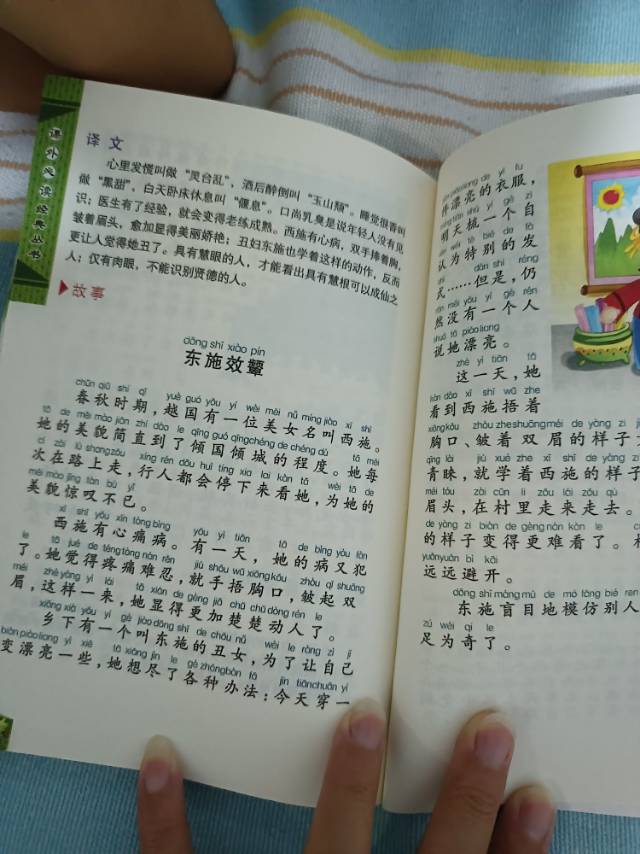 课外必读经典丛书
译文
心里发慌叫做“灵台乱”，酒后醉倒叫“玉山颓”。睡觉很香叫
做“黑甜”，白天卧床休息叫“偃息”。口尚乳臭是说年轻人没有见
识；医生有了经验，就会变得老练成熟。西施有心病，双手捧着胸，
皱着眉头，愈加显得美丽娇艳；丑妇东施也学着这样的动作，反而
更让人觉得她丑了。具有慧眼的人，才能看出具有慧根可以成仙之
人；仅有肉眼，不能识别贤德的人。
故事
dōng shī xiào pín
东施效颦
chūn qiū shí qī yuè guó yǒu yí wèi měi nǚ míng jiào xī shī
春秋时期，越国有一位美女名叫西施。
tā de měi mào jiǎn zhí dào le qīng guó qīng chéng de chéng dù tā měi
她的美貌简直到了倾国倾城的程度。她每
cì zài lù shang zǒu xíng rén dōu huì tíng xià lái kàn tā wèi tā de
次在路上走，行人都会停下来看她，为她的
měi mào jīng tàn bù yǐ
美貌惊叹不已。
xī shī yǒu xīn tòng bìng yǒu yì tiān tā de bìng yòu fàn
西施有心痛病。有一天，她的病又犯
le tā jué de téng tòng nán rěn jiù shǒu wǔ xiōng kǒu zhòu qǐ shuāng
了。她觉得疼痛难忍，就手捂胸口，皱起双
méi zhè yàng yì lái tā xiǎn de gèng jiā chǔ chǔ dòng rén le
眉，这样一来，她显得更加楚楚动人了。
xiāng xià yǒu yí gè jiào dōng shī de chǒu nǚ wèi le ràng zì jǐ
乡下有一个叫东施的丑女，为了让自己
biàn piào liang yì xiē tā xiǎng jìn le gè zhǒng bàn fǎ jīn tiān chuān yí
变漂亮一些，她想尽了各种办法：今天穿一
件漂亮的衣服，
明天梳一个自
认为特别的发
式……但是，仍
rán méi yǒu yí gè rén
然没有一个人
shuō tā piào liang
说她漂亮。
zhè yì tiān tā
这一天，她
kàn dào xī shī wǔ zhe
看到西施捂着
xiōng kǒu zhòu zhe shuāng méi de yàng zi
胸口、皱着双眉的样子
qīng lài jiù xué zhe xī shī de yàng zi
青睐，就学着西施的样子
méi tóu zài cūn lǐ zǒu lái zǒu qù
眉头，在村里走来走去。
de yàng zi biàn de gèng nán kàn le
的样子变得更难看了。
yuǎn yuǎn bì kāi
远远避开。
dōng shī máng mù de mó fǎng bié rén
东施盲目地模仿别人
zú wéi qí le
足为奇了。